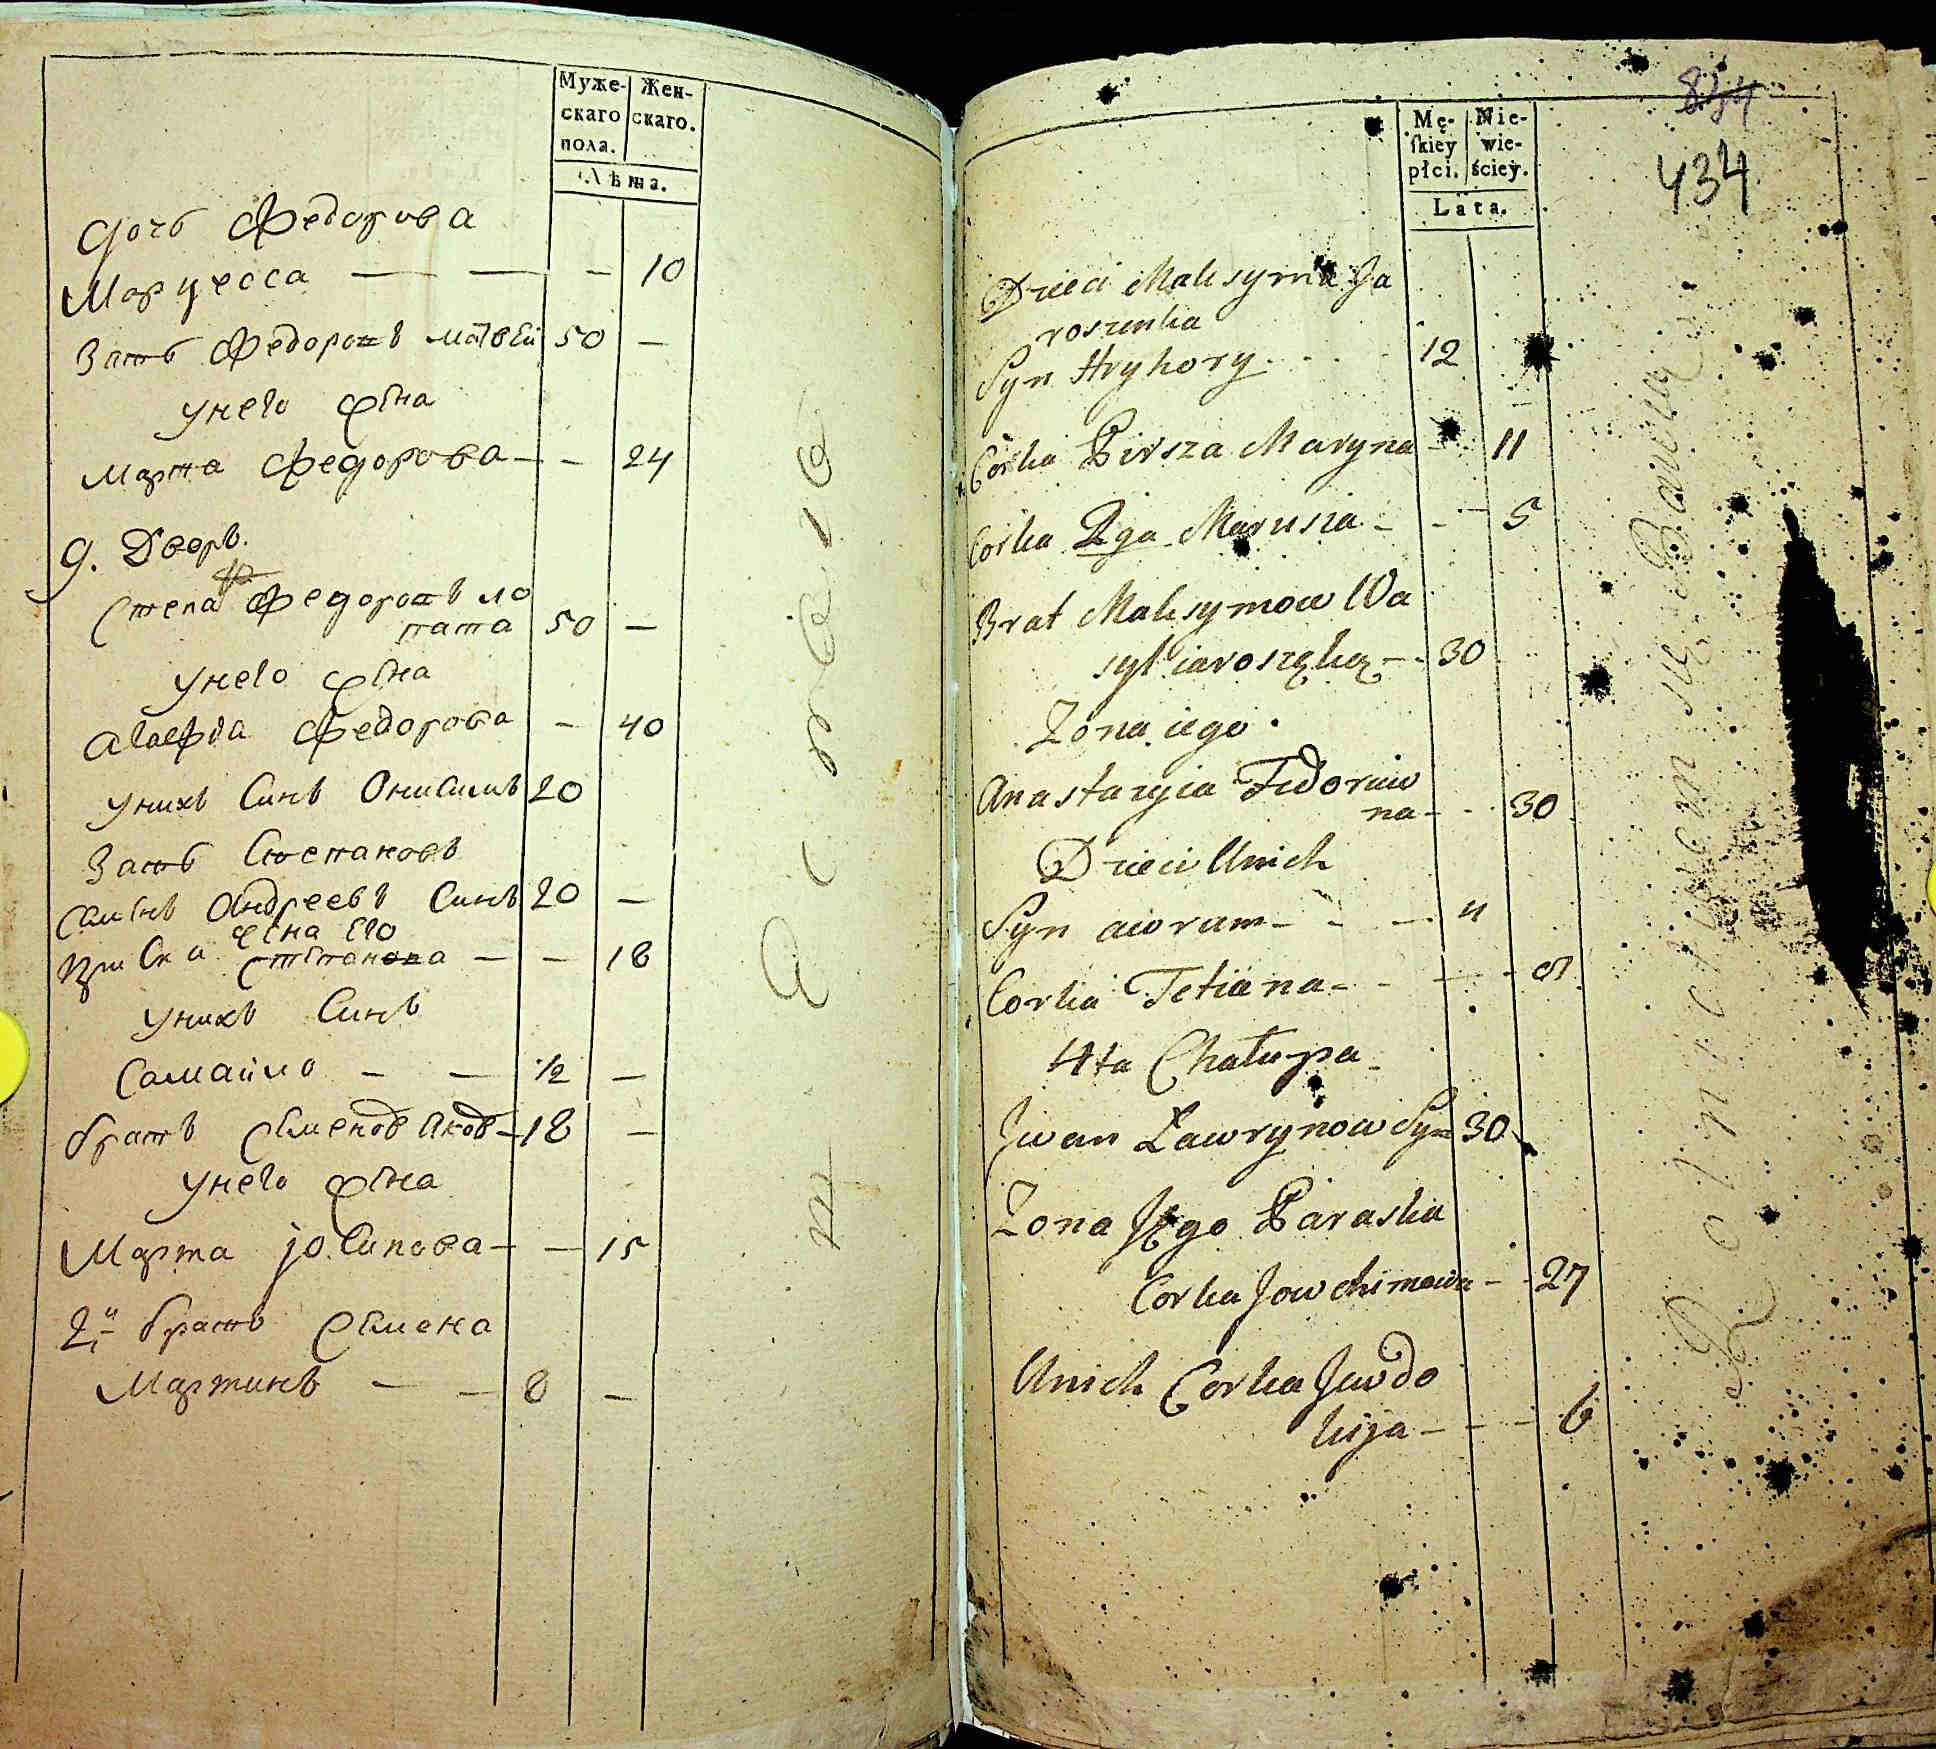 Муже-
скаго
пола.
Жен-
скаго.
Лѣта.
Дочь Федорова
Марцесса — — — 10
Зать Федоровъ Матвей 50 —
Унего жена
Марта Федорова — — 24
9. Дворъ.
Степа Федоровъ ло
пата 50 —
Унего жена
Агафия Федорова — 40
Унихъ Синъ Онисимъ 20
Зать Степановъ
Андреевъ Синъ 20 —
жена Его
Степанова — — 18
Унихъ Синъ
Самаило — — ½ —
братъ Семенов Яков — 18 —
Унего жена
Марта Иосипова — — 15
2й братъ Семена
Мартинъ — — 8 —
Mę-
skiey
płci.
Nie-
wie-
ściey.
Lata.
434
Dzieci Maksyma Ja
roszenka
Syn Hryhory 12
Corka Pirsza Maryna — 11
Corka 2ga Marusia — - — 5
Brat Maksymow Wa
syl iaroszęką — 30
Zona iego
Anastazyia Fedorow
na — 30
Dzieci Unich
Syn — - — 11
Corka Tetiana — - — 9
4ta Chałupa
Jwan Ławrynow Syn 30
Zona Jego Paraska
Corka Jowchimowa — - 27
Unich Corka Jawdo
kija — - — 6